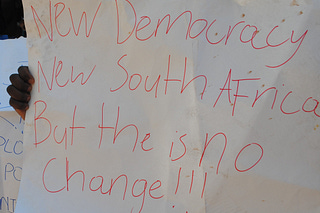 New Democracy
New South Africa
But the is no
Change!!!